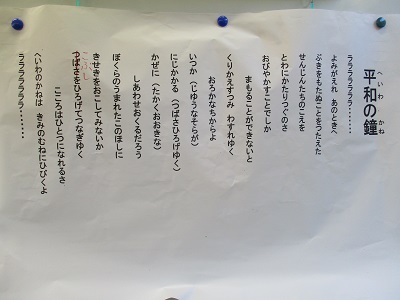 平和の鐘
へいわ　かね
ラララララララ・・・・・・
よみがえれ　あのときへ
ぶきをもたぬことをつたえた
せんじんたちのこえを
とわにかたりつぐのさ
おびやかすことでしか
まもることができないと
くりかえすつみ　わすれゆく
おろかなちからよ
いつか（じゆうなそらが）
にじかかる（つばさひろげゆく）
かぜに（たかくおおきな）
しあわせおくるだろう
ぼくらのうまれたこのほしに
きせきをおこしてみないか
こぶし
つばさをひろげてつなぎゆく
こころはひとつになれるさ
へいわのかねは　きみのむねにひびくよ
ララララララララ・・・・・・